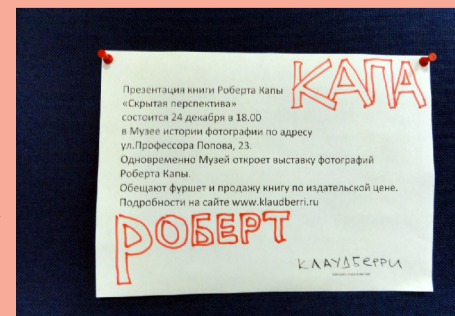 КАПА
Презентация книги Роберта Капы
«Скрытая перспектива»
состоится 24 декабря в 18.00
в Музее истории фотографии по адресу
ул.Профессора Попова, 23.
Одновременно Музей откроет выставку фотографий
Роберта Капы.
Обещают фуршет и продажу книгу по издательской цене.
Подробности на сайте www.klaudberri.ru
РОБЕРТ
КЛАУДБЕРРИ